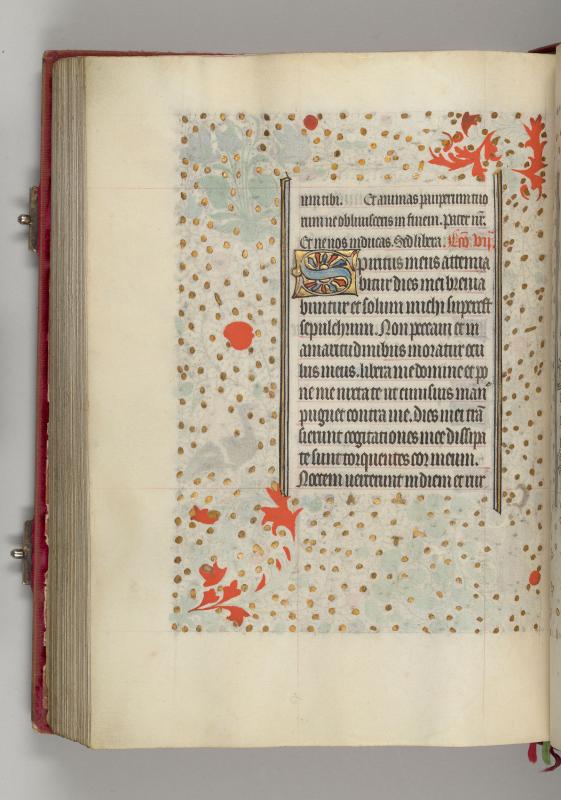 mittibi. Et animas pauperum tuo
rum ne obliviscaris in finem. Pater nr̄.
Et ne nos inducas. Sed libera. Lc̄o. vij.
Spiritus meus attenua
bitur dies mei brevia
buntur et solum michi superest
sepulchrum. Non peccavi et in
amaritudinibus moratur ocu
lus meus. libera me domine et po
ne me iuxta te ut cuiusvis man⁹
pugnet contra me. dies mei trā
sierunt cogitationes mee dissipa
te sunt torquentes cor meum.
Noctem verterunt in diem et rur